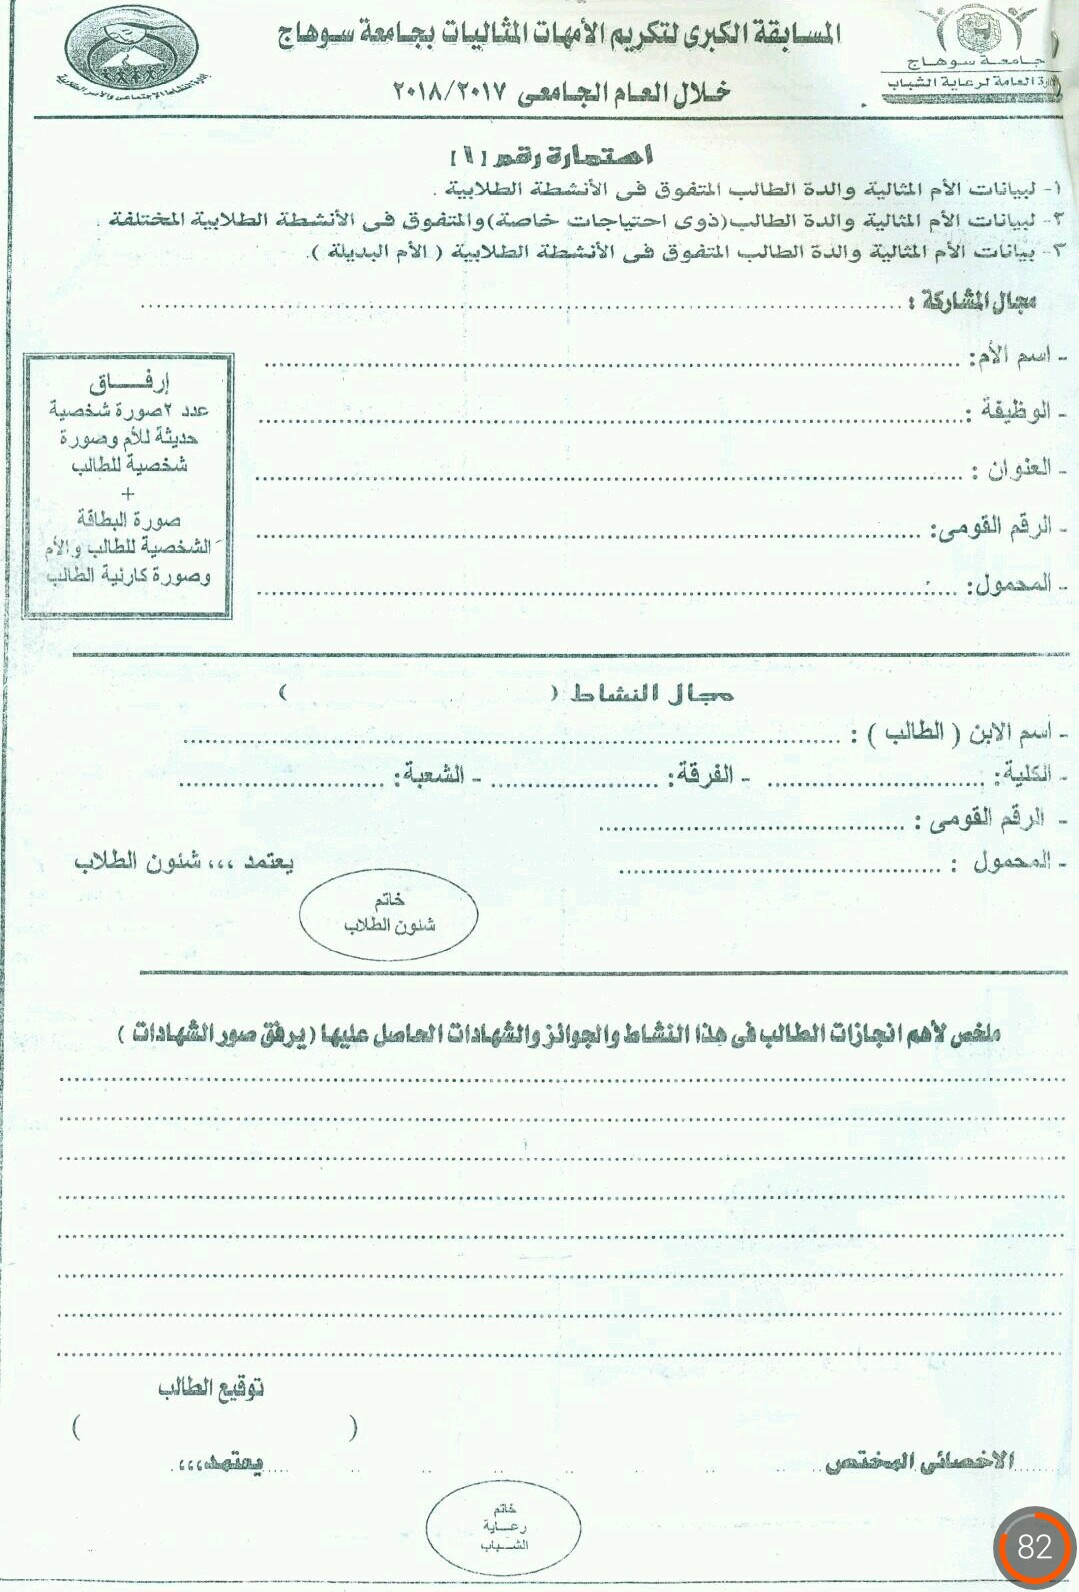 المسابقة الكبرى لتكريم الأمهات المثاليات بجامعة سوهاج
خلال العام الجامعى ٢٠١٨/٢٠١٧
جامعة سوهاج
العامة لرعاية الشباب
استمارة رقم [١]
١- لبيانات الأم المثالية والدة الطالب المتفوق فى الأنشطة الطلابية .
٢- لبيانات الأم المثالية والدة الطالب(ذوى احتياجات خاصة)والمتفوق فى الأنشطة الطلابية المختلفة .
٣- بيانات الأم المثالية والدة الطالب المتفوق فى الأنشطة الطلابية ( الأم البديلة ).
مجال المشاركة :
- اسم الأم:
- الوظيفة :
- العنوان :
- الرقم القومى:
- المحمول:
إرفـــاق
عدد ٢صورة شخصية
حديثة للأم وصورة
شخصية للطالب
+
صورة البطاقة
الشخصية للطالب والأم
وصورة كارنية الطالب
مجال النشاط ( )
- اسم الابن ( الطالب ) :
- الكلية: - الفرقة: - الشعبة:
- الرقم القومى :
- المحمول : يعتمد ،،، شئون الطلاب
خاتم
شئون الطلاب
ملخص لأهم انجازات الطالب فى هذا النشاط والجوائز والشهادات الحاصل عليها ( يرفق صور الشهادات )
توقيع الطالب
( )
الاخصائى المختص يعتمد،،،
خاتم
رعــاية
الشــباب
82